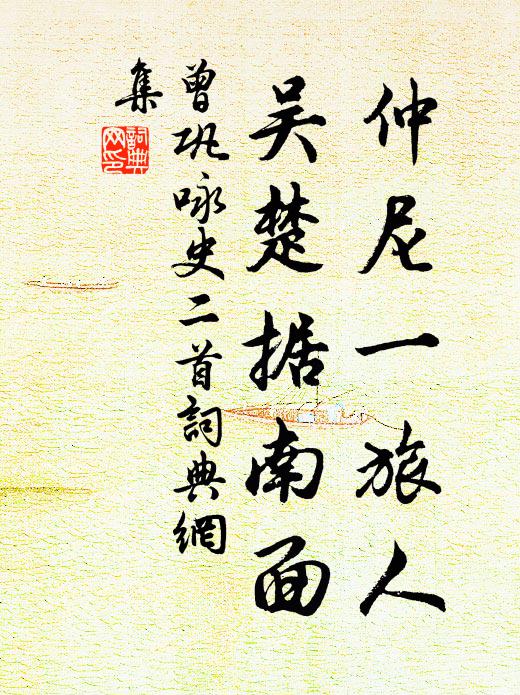 仲尼一旅人
吴楚据南面
曾巩咏史二首詞典網
集
詞典
网印